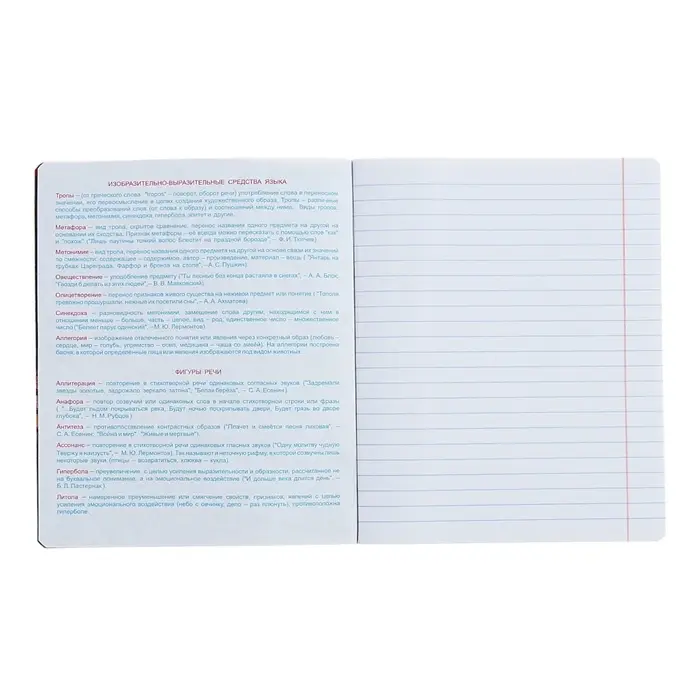 ИЗОБРАЗИТЕЛЬНО-ВЫРАЗИТЕЛЬНЫЕ СРЕДСТВА ЯЗЫКА
Тропы – (от греческого слова "tropos" – поворот, оборот речи) употребление слова в переносном
значении, его переосмысление в целях создания художественного образа. Тропы – различные
способы преобразования слов (от слова к образу) и соотношений между ними. Виды тропов:
метафора, метонимия, синекдоха, гипербола, эпитет и другие.
Метафора – вид тропа, скрытое сравнение, перенос названия одного предмета на другой на
основании их сходства. Признак метафоры – её всегда можно пересказать с помощью слов "как"
и "похож" ("Лишь паутины тонкий волос Блестит на праздной борозде", – Ф. И. Тютчев)
Метонимия – вид тропа, перенос названия одного предмета на другой на основе связи их значений
по смежности: содержащее – содержимое, автор – произведение, материал – вещь ( "Янтарь на
трубках Цареграда, Фарфор и бронза на столе", – А. С. Пушкин).
Овеществление – уподобление предмету ("Ты песнью без конца растаяла в снегах", – А. А. Блок,
"Гвозди б делать из этих людей", – В. В. Маяковский).
Олицетворение – перенос признаков живого существа на неживой предмет или понятие ( "Тополя
тревожно прошуршали, нежные их посетили сны", – А. А. Ахматова)
Синекдоха – разновидность метонимии, замещение слова другим, находящимся с ним в
отношении меньшее – большее, часть – целое, вид – род, единственное число – множественное
число ("Белеет парус одинокий", – М. Ю. Лермонтов)
Аллегория – изображение отвлеченного понятия или явления через конкретный образ (любовь –
сердце, мир – голубь, упрямство – осел, медицина – чаша со змеёй). На аллегории построена
басня, в которой определённые лица или явления изображаются под видом животных
ФИГУРЫ РЕЧИ
Аллитерация – повторение в стихотворной речи одинаковых согласных звуков ("Задремали
звезды золотые, задрожало зеркало затона", "Белая береза", – С. А. Есенин).
Анафора – повтор созвучий или одинаковых слов в начале стихотворной строки или фразы
( "...Будет льдом покрываться река, Будут ночью поскрипывать двери, Будет грязь во дворе
глубока", – Н. М. Рубцов ).
Антитеза – противопоставление контрастных образов ("Плачет и смеётся песня лиховая" –
С. А. Есенин: "Война и мир". "Живые и мертвые").
Ассонанс – повторение в стихотворной речи одинаковых гласных звуков ("Одну молитву чудную
Твержу я наизусть", – М. Ю. Лермонтов). Так называют и неточную рифму, в которой созвучны лишь
некоторые звуки. (птицы – возвратиться, хлюква – кукла).
Гипербола – преувеличение с целью усиления выразительности и образности, рассчитанное не
на буквальное понимание, а на эмоциональное воздействие ("И дольше века длится день", –
Б. Л. Пастернак).
Литота – намеренное преуменьшение или смягчение свойств, признаков, явления с целью
усиления эмоционального воздействия (небо с овчинку, дело – раз плюнуть), противоположна
гиперболе